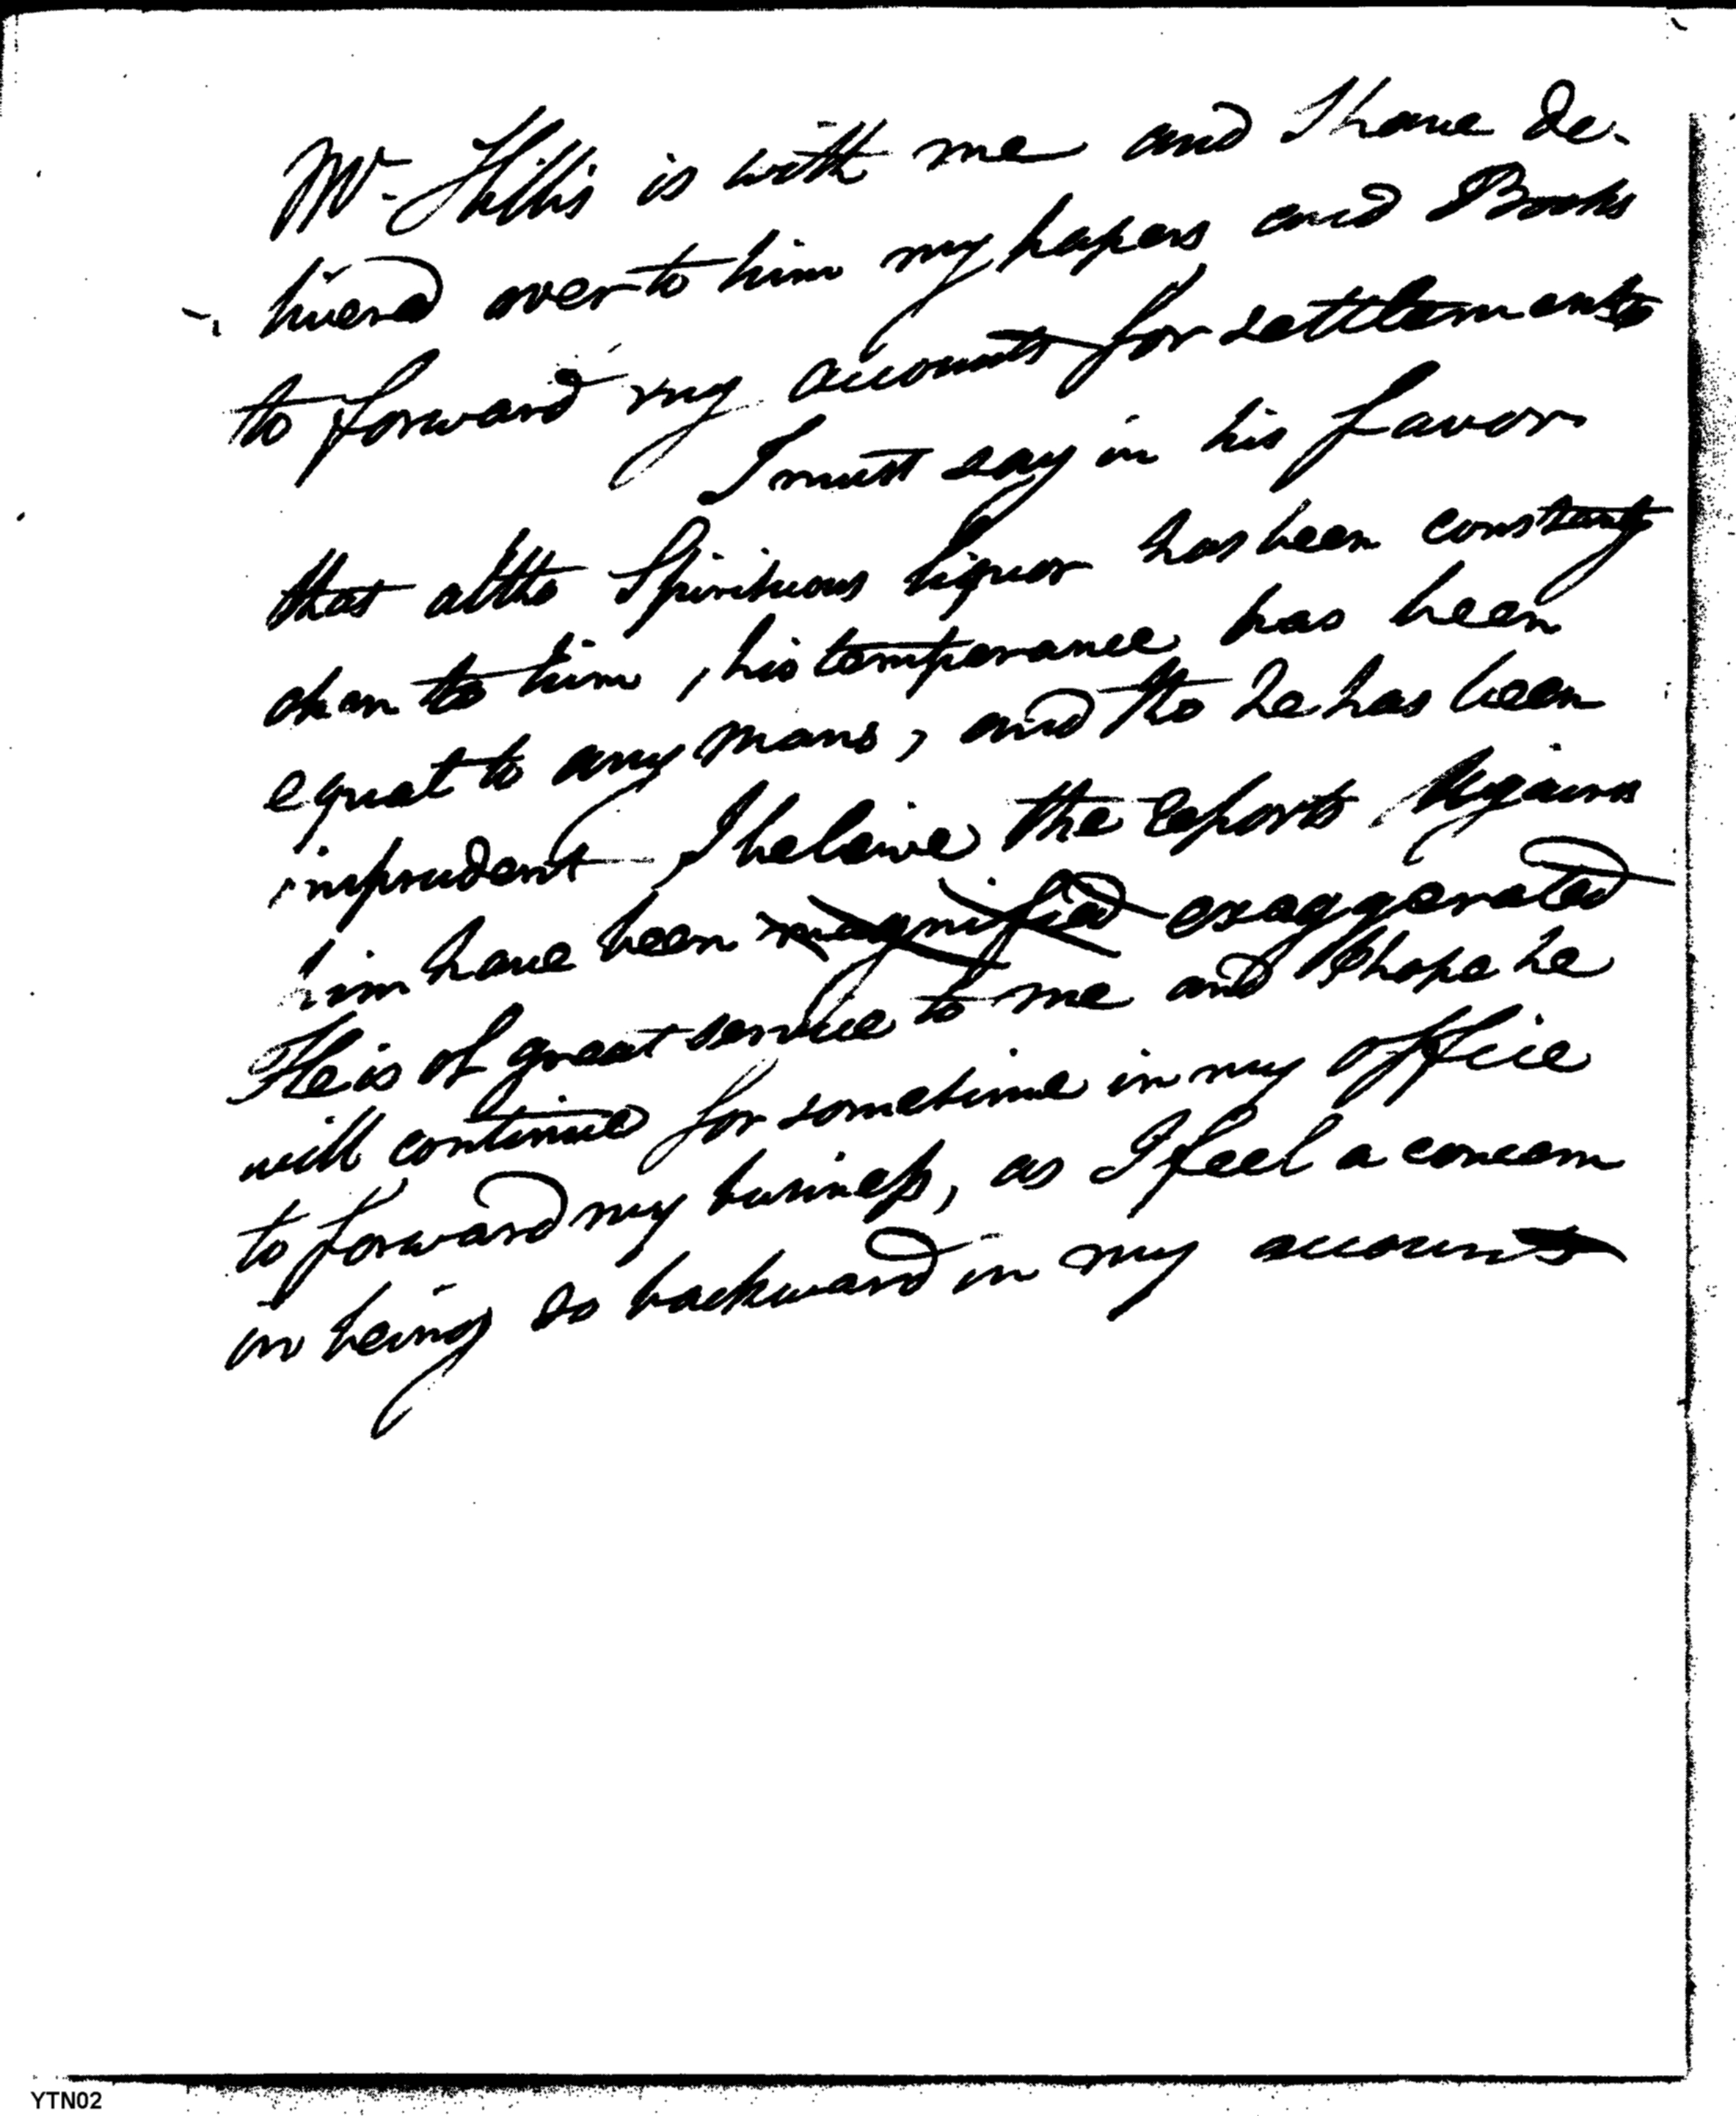 Mr. Hillis is with me and I have de-
livered over to him my papers and Books
to forward my accounts for settlements
I must say in his favor
that altho Spirituous liquor has been constantly
open to him, his temperance has been
equal to any mans, and tho he has been
imprudent I beleive the reports against
him have been magnified exaggerated
He is of great service to me and I hope he
will continue for sometime in my office
to forward my business, as I feel a concern
in being so backward in my accounts
YTN02